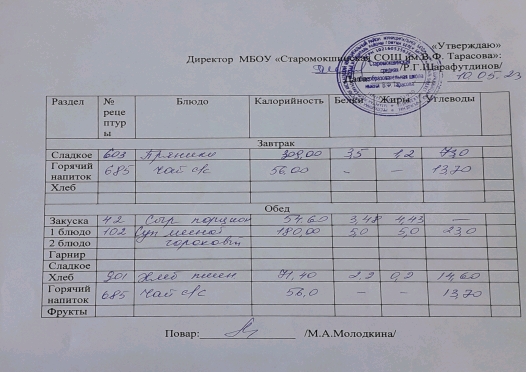 «Утверждаю»
Директор МБОУ «Старомокшинская СОШ им.В.Ф. Тарасова»:
/Р.Г.Шарафутдинов/
10.05.23
Раздел № рецептуры Блюдо Калорийность Белки Жиры Углеводы
Завтрак
Сладкое 603 Пряники 309,00 3,5 1,2 73,0
Горячий напиток 685 Чай с/с 56,00 – – 13,70
Хлеб - -
Обед
Закуска 42 Сыр порцион 54.60 3,48 4,43 —
1 блюдо 102 Суп мясной 180,00 5,0 5,0 23,0
2 блюдо гороховый
Гарнир
Сладкое
Хлеб 901 Хлеб пшен 71.40 2,2 0,2 14,60
Горячий напиток 685 Чай с/с 56,0 – – 13,70
Фрукты
Повар: /М.А.Молодкина/